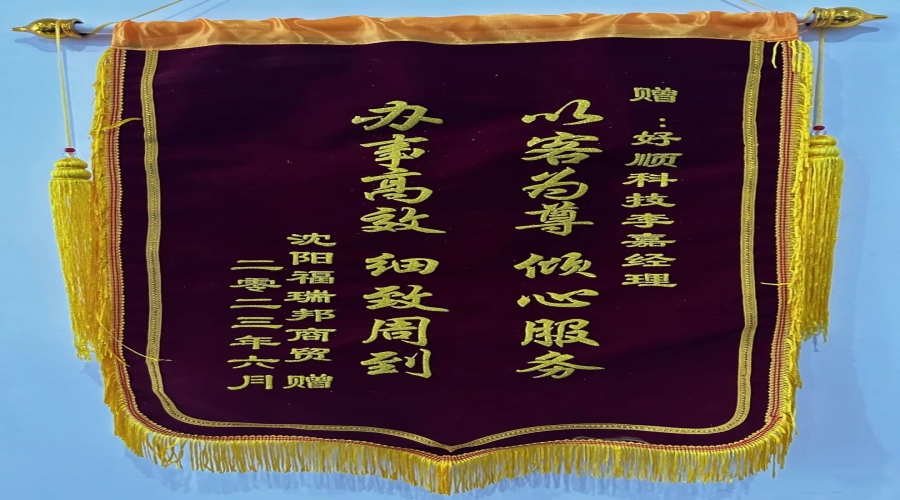 赠：好顺科技李嘉经理
以客为尊 倾心服务
办事高效 细致周到
沈阳福瑞邦商贸 赠
二零二三年六月